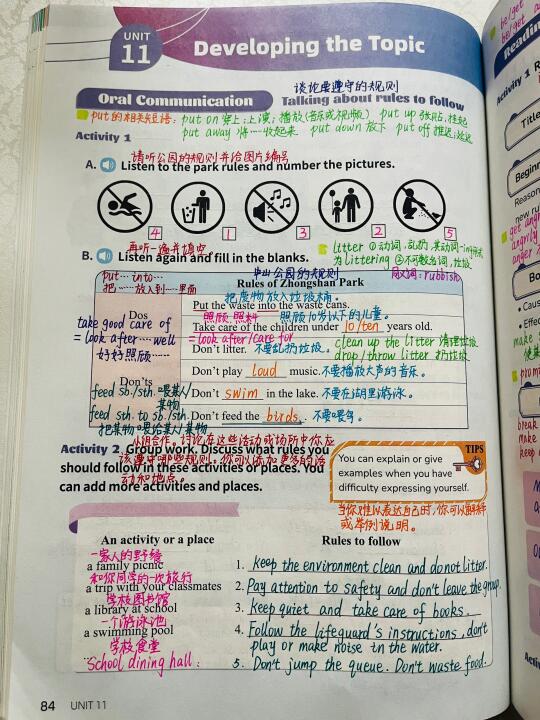 UNIT
11
Developing the Topic
谈论要遵守的规则
Oral Communication
Talking about rules to follow
put的相关短语: put on 穿上;上演;播放(音乐或视频) put up 张贴;挂起
put away 将…收起来 put down 放下 put off 推迟;延迟
Activity 1
请听公园的规则并给图片编号
A. Listen to the park rules and number the pictures.
4 1 3 2 5
再听一遍并填空
B. Listen again and fill in the blanks.
litter ①动词,乱扔,其动词-ing形式
为littering ②不可数名词,垃圾
同义词: rubbish
put… into…
把……放入到…里面
中山公园的规则
Rules of Zhongshan Park
把废物放入垃圾桶。
Dos
Put the waste into the waste cans.
照顾,照料 照顾10岁以下的儿童。
take good care of
Take care of the children under 10/ten years old.
= look after… well
= look after/care for
好好照顾……
clean up the litter 清理垃圾
Don't litter. 不要乱扔垃圾。
drop/throw litter 扔垃圾
Don'ts
Don't play loud music. 不要播放大声的音乐。
feed sb./sth. 喂某人/
某物
Don't swim in the lake. 不要在湖里游泳。
feed sth. to sb./sth.
把某物喂给某人/某物
Don't feed the birds. 不要喂鸟。
小组合作。讨论在这些活动或场所中你应
Activity 2 Group work. Discuss what rules you
该遵守哪些规则。你可以添加更多的活
should follow in these activities or places. You
动和地点。
can add more activities and places.
TIPS
You can explain or give
examples when you have
difficulty expressing yourself.
当你难以表达自己时,你可以解释
或举例说明。
An activity or a place
Rules to follow
一家人的野餐
a family picnic
1. Keep the environment clean and do not litter.
和你同学的一次旅行
a trip with your classmates
2. Pay attention to safety and don't leave the group.
学校图书馆
a library at school
3. Keep quiet and take care of books.
一个游泳池
a swimming pool
4. Follow the lifeguard's instructions, don't
play or make noise in the water.
学校食堂
School dining hall.
5. Don't jump the queue. Don't waste food.
84 UNIT 11
be/get
Reading
Activity 1
Title
Beginn
Reason
new ru
get angry
angrily
anger
Bo
• Caus
• Effec
break
make
keep